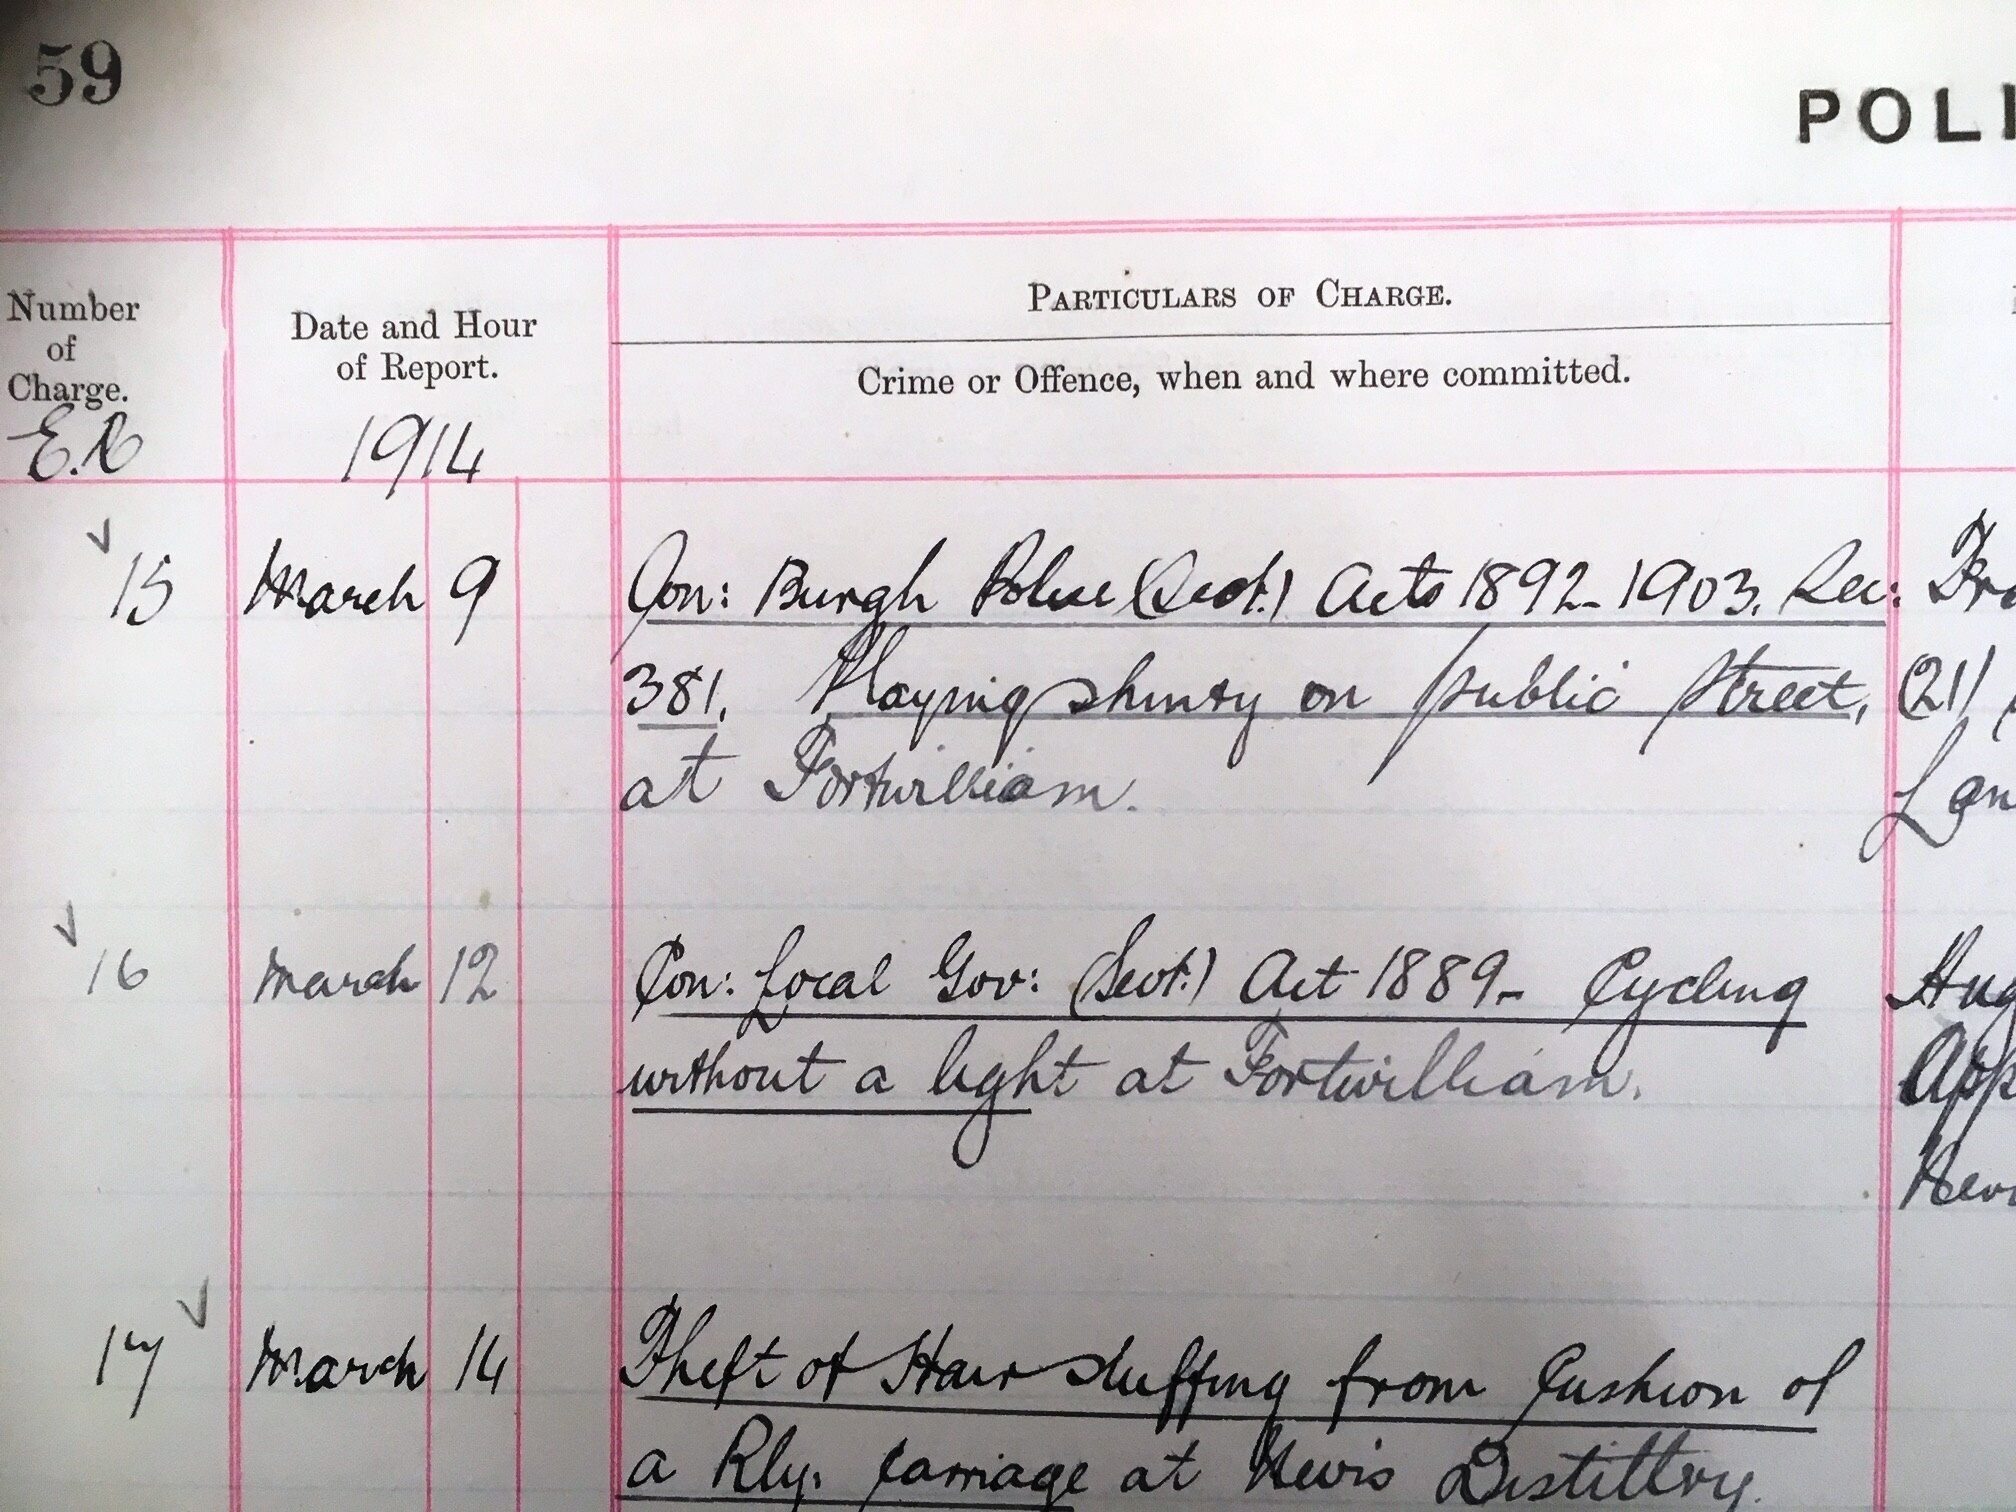 59
POLI
Number
of
Charge.
Date and Hour
of Report.
PARTICULARS OF CHARGE.
Crime or Offence, when and where committed.
1914
15 March 9 Con: Burgh Police (Scot.) Acts 1892-1903. Sec:
381. Playing shinty on public Street,
at Fortwilliam.
(21)
16 March 12 Con: Local Gov: (Scot.) Act 1889- Cycling Hug
without a light at Fortwilliam.
17 March 14 Theft of Hair stuffing from Cushion of
a Rly. Carriage at Nevis Distillery.